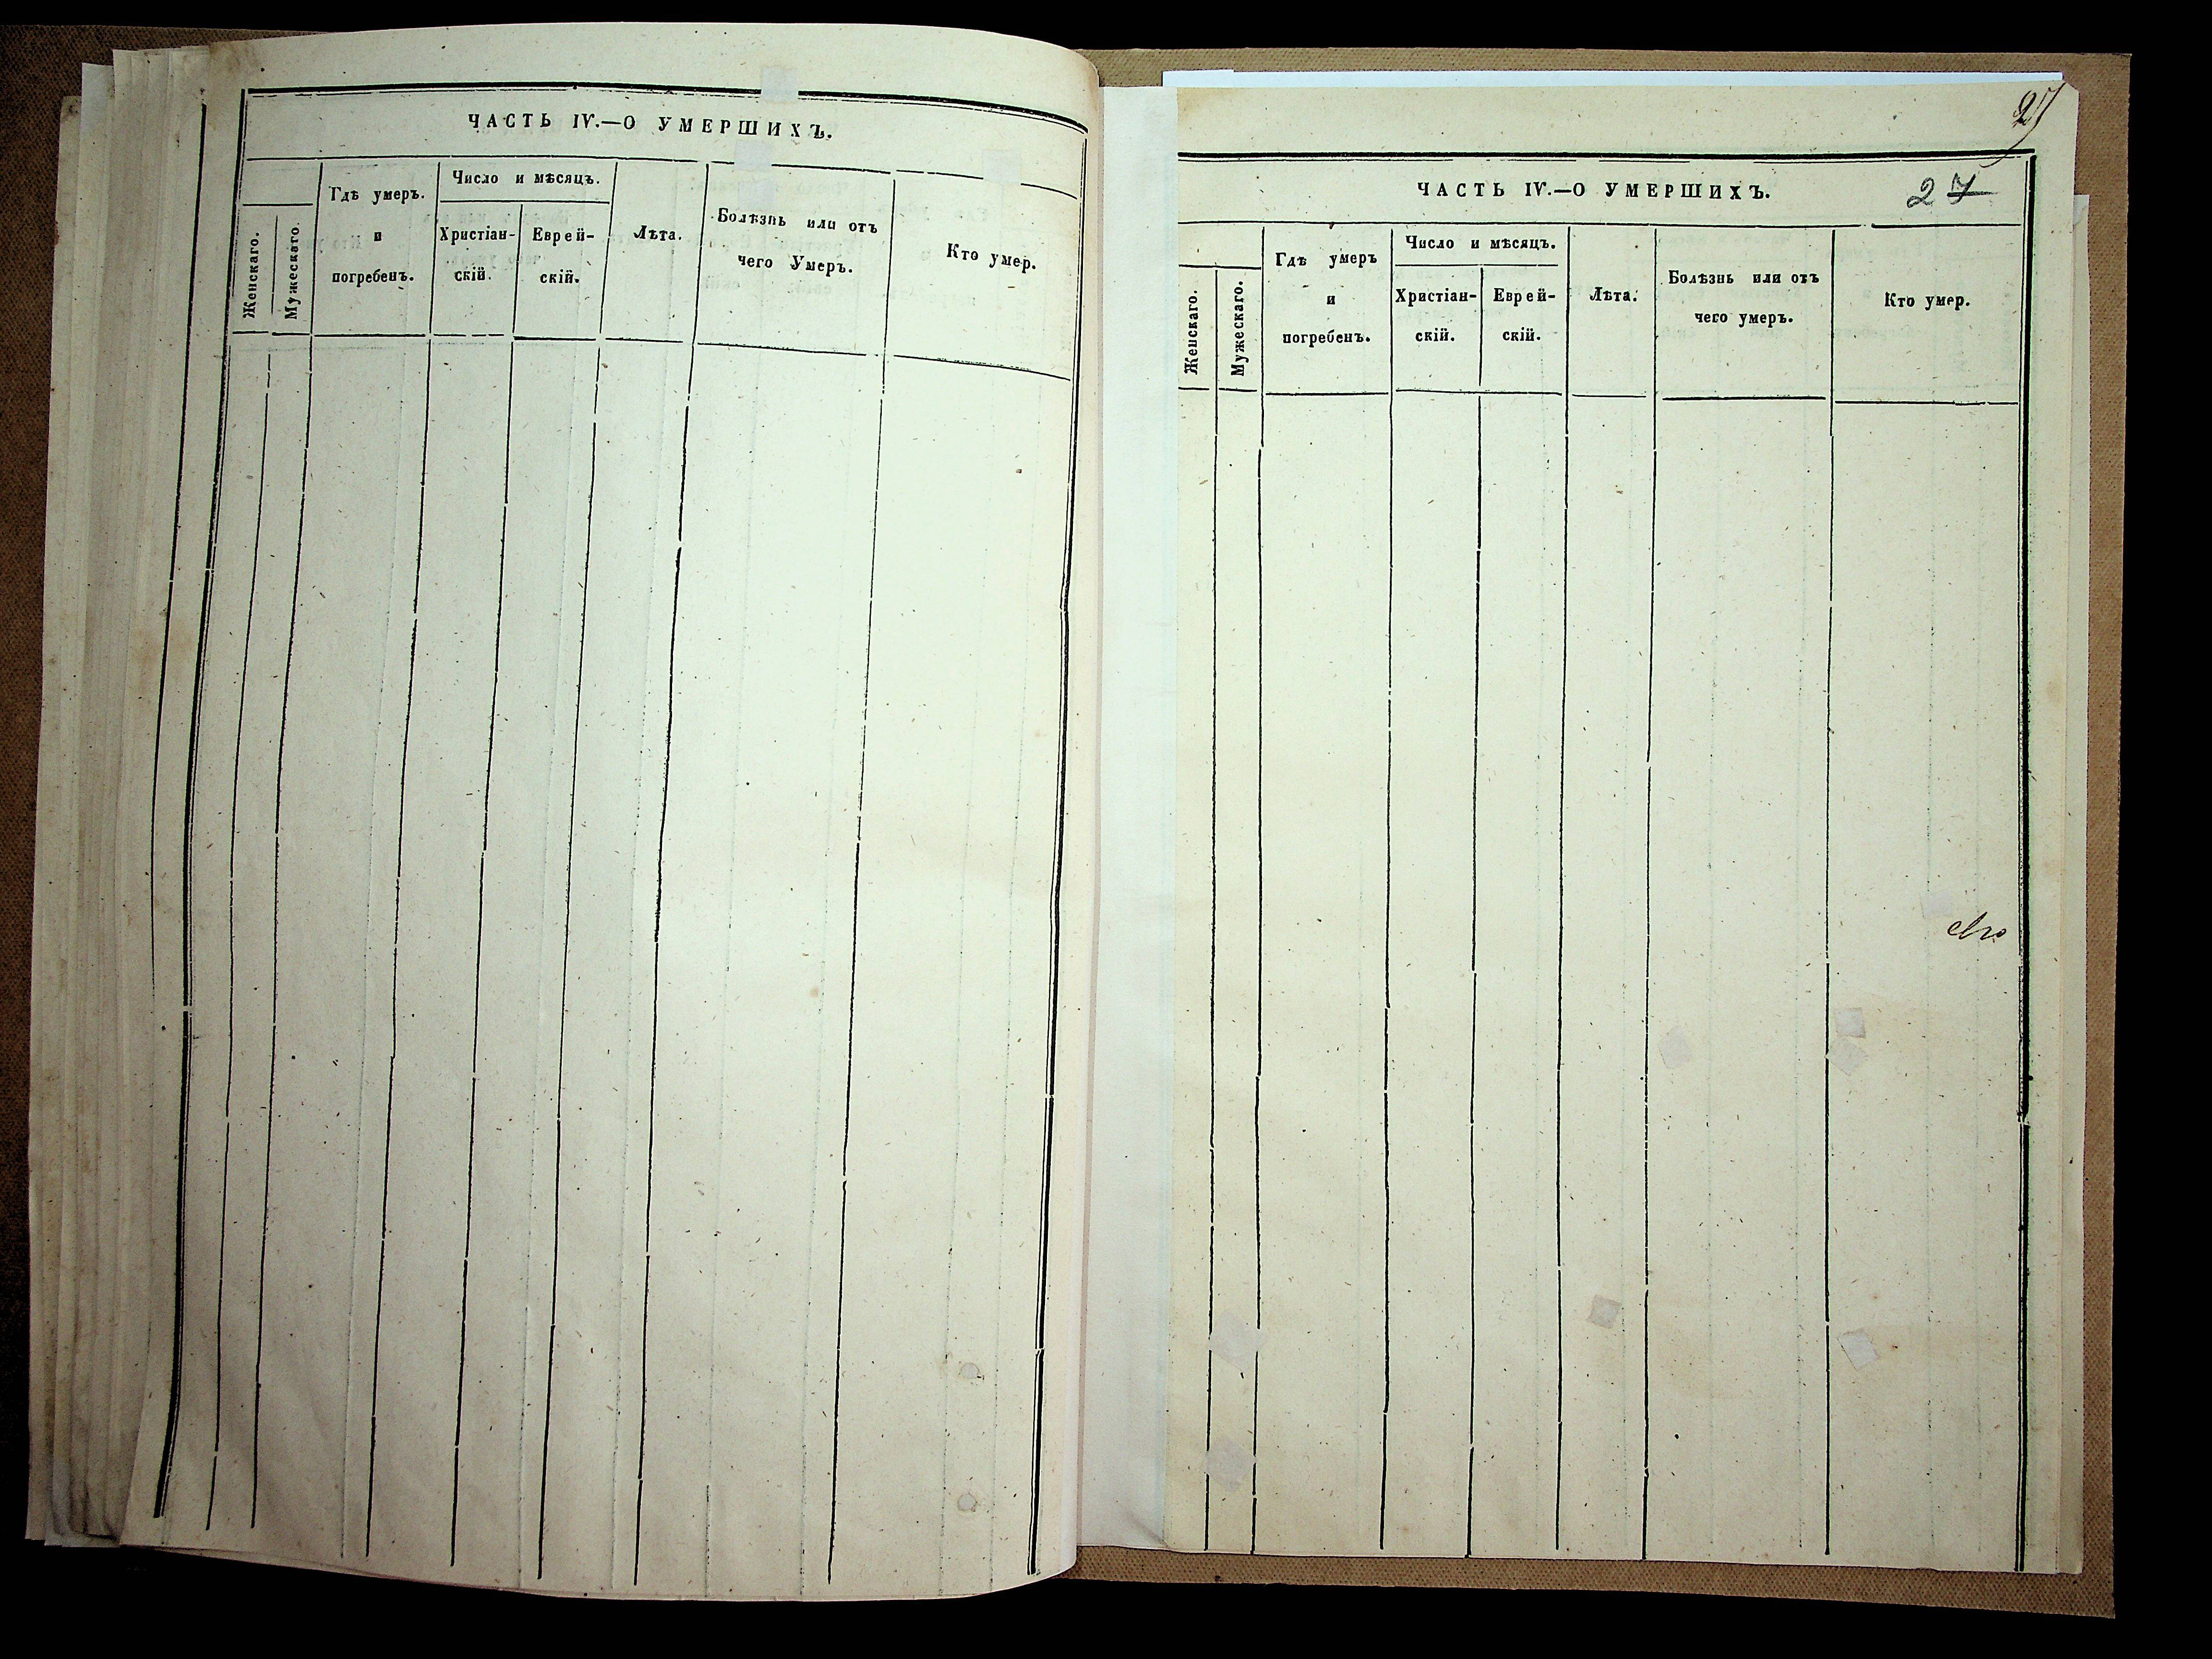 ЧАСТЬ IV.—О УМЕРШИХЪ.
Женскаго.
Мужескаго.
Гдѣ умеръ.
и
погребенъ.
Число и мѣсяцъ.
Христіан-
скій.
Еврей-
скій.
Лѣта.
Болѣзнь или отъ
чего Умеръ.
Кто умер.
27
ЧАСТЬ IV.—О УМЕРШИХЪ.
27
Женскаго.
Мужескаго.
Гдѣ умеръ
и
погребенъ.
Число и мѣсяцъ.
Христіан-
скій.
Еврей-
скій.
Лѣта.
Болѣзнь или отъ
чего умеръ.
Кто умер.